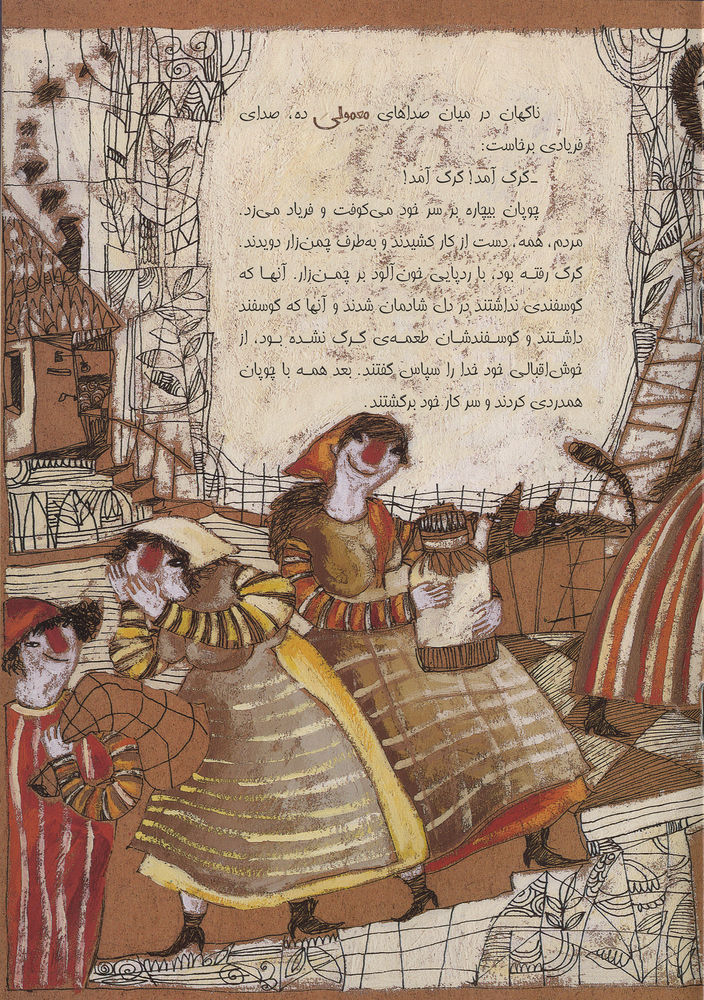 ناگهان در میان صداهای معمولی ده، صدای
فریادی برخاست:
ـ گرگ آمد! گرگ آمد!
چوپان بیچاره بر سر خود می‌کوفت و فریاد می‌زد.
مردم، همه، دست از کار کشیدند و به‌طرف چمن‌زار دویدند.
گرگ رفته بود، با ردپایی خون‌آلود بر چمن‌زار. آنها که
گوسفندی نداشتند در دل شادمان شدند و آنها که گوسفند
داشتند و گوسفندشان طعمه‌ی گرگ نشده بود، از
خوش‌اقبالی خود خدا را سپاس گفتند. بعد همه با چوپان
همدردی کردند و سر کار خود برگشتند.